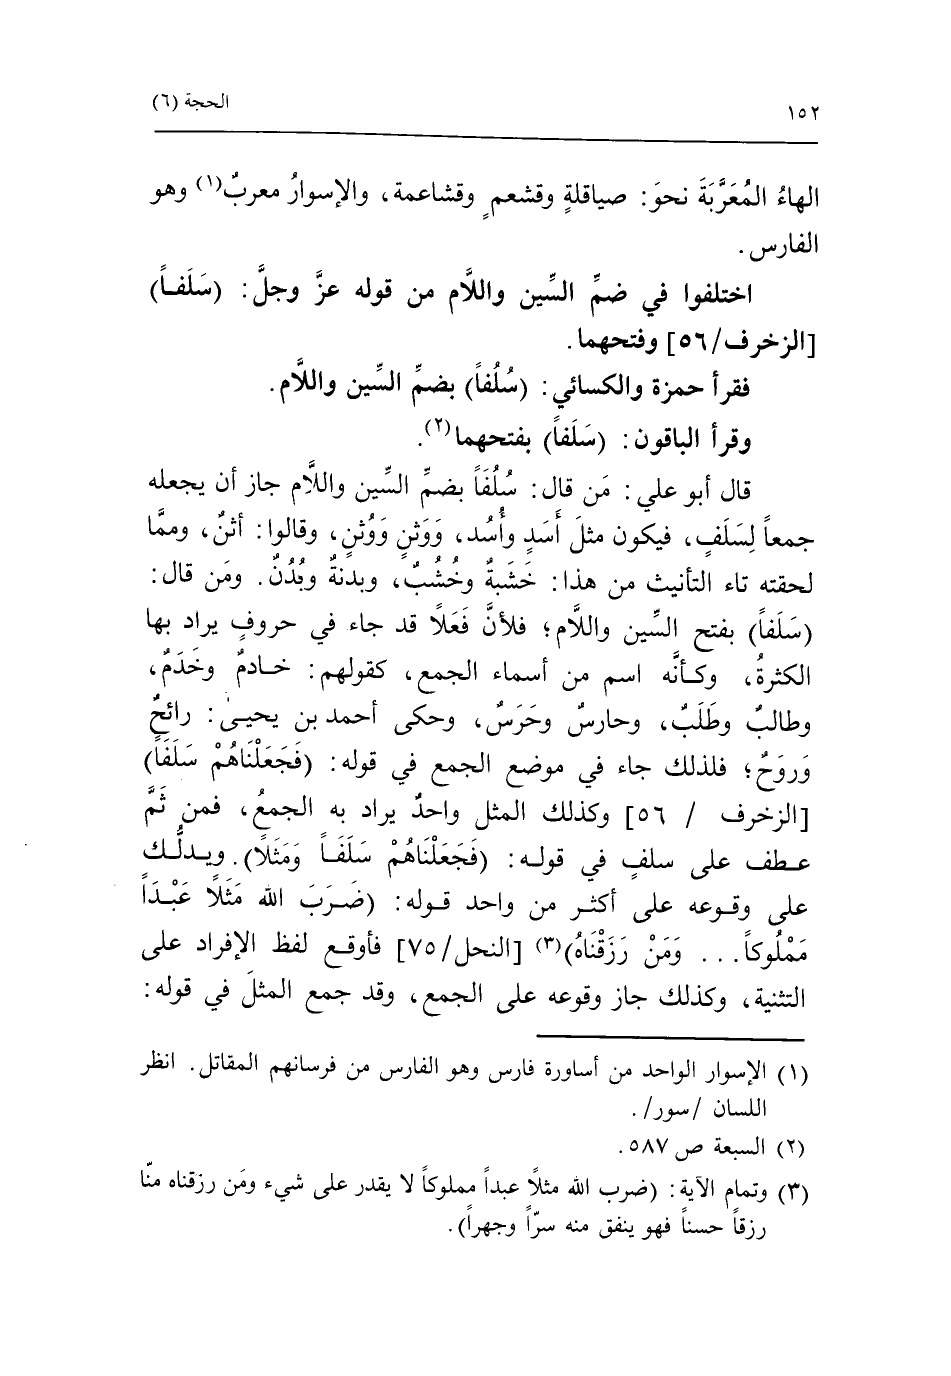 ١٥٢
الحجة (٦)
الهاءُ المُعَرَّبَةَ نحوَ: صياقلةٍ وقشعمٍ وقشاعمة، والإسوارُ معربٌ(١) وهو
الفارس.
اختلفوا في ضمِّ السِّين واللَّام من قوله عزَّ وجلَّ: (سَلَفاً)
[الزخرف/٥٦] وفتحهما.
فقرأ حمزة والكسائي: (سُلُفاً) بضمِّ السِّين واللَّام.
وقرأ الباقون: (سَلَفاً) بفتحهما(٢).
قال أبو علي: مَن قال: سُلُفَاً بضمِّ السِّين واللَّام جاز أن يجعله
جمعاً لِسَلَفٍ، فيكون مثلَ أَسَدٍ وأُسُد، وَوَثنٍ وَوُثنٍ، وقالوا: أثنٌ، وممَّا
لحقته تاء التأنيث من هذا: خَشَبةٌ وخُشُبٌ، وبدنةٌ وبُدُنٌ. ومَن قال:
(سَلَفاً) بفتح السِّين واللَّام؛ فلأنَّ فَعَلًا قد جاء في حروفٍ يراد بها
الكثرةُ، وكأنَّه اسم من أسماء الجمع، كقولهم: خادمٌ وخَدَمٌ،
وطالبٌ وطَلَبٌ، وحارسٌ وحَرَسٌ، وحكى أحمد بن يحيىٰ: رائحٌ
وَروَحٌ؛ فلذلك جاء في موضع الجمع في قوله: (فَجَعَلْنَاهُمْ سَلَفَاً)
[الزخرف / ٥٦] وكذلك المثل واحدٌ يراد به الجمعُ، فمن ثَمَّ
عطف على سلفٍ في قوله: (فَجَعَلْنَاهُمْ سَلَفَاً وَمَثَلًا). ويدلُّك
على وقوعه على أكثر من واحد قوله: (ضَرَبَ الله مَثَلًا عَبْدَاً
مَمْلُوكاً... وَمَنْ رَزَقْنَاهُ)(٣) [النحل/٧٥] فأوقع لفظ الإفراد على
التثنية، وكذلك جاز وقوعه على الجمع، وقد جمع المثلَ في قوله:
(١) الإسوار الواحد من أساورة فارس وهو الفارس من فرسانهم المقاتل. انظر
اللسان /سور/.
(٢) السبعة ص ٥٨٧.
(٣) وتمام الآية: (ضرب الله مثلًا عبداً مملوكاً لا يقدر على شيء ومَن رزقناه منّا
رزقاً حسناً فهو ينفق منه سرّاً وجهراً).